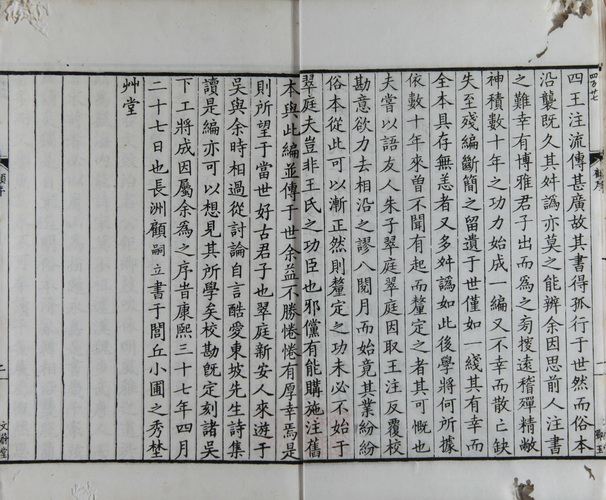 四王注流傳甚廣故其書得孤行于世然而俗本
沿襲既久其舛譌亦莫之能辨余因思前人注書
之難幸有博雅君子出而為之旁搜遠稽殫精敝
神積數十年之功力始成一編又不幸而散亡缺
失至殘編斷簡之留遺于世僅如一綫其有幸而
全本具存無恙者又多舛譌如此後學將何所據
依數十年來曾不聞有起而釐定之者其可慨也
夫嘗以語友人朱子翠庭翠庭因取王注反覆校
勘意欲力去相沿之謬八閱月而始竟其業紛紛
俗本從此可以漸正然則釐定之功未必不始于
翠庭夫豈非王氏之功臣也邪儻有能購施注舊
本與此編並傳于世余益不勝惓惓有厚幸焉是
則所望于當世好古君子也翠庭新安人來遊于
吳與余時相過從討論自言酷愛東坡先生詩集
讀是編亦可以想見其所學矣校勘既定刻諸吳
下工將成因屬余為之序旹康熙三十七年四月
二十七日也長洲顧嗣立書于閭丘小圃之秀埜
艸堂
顧序
二
文蔚堂